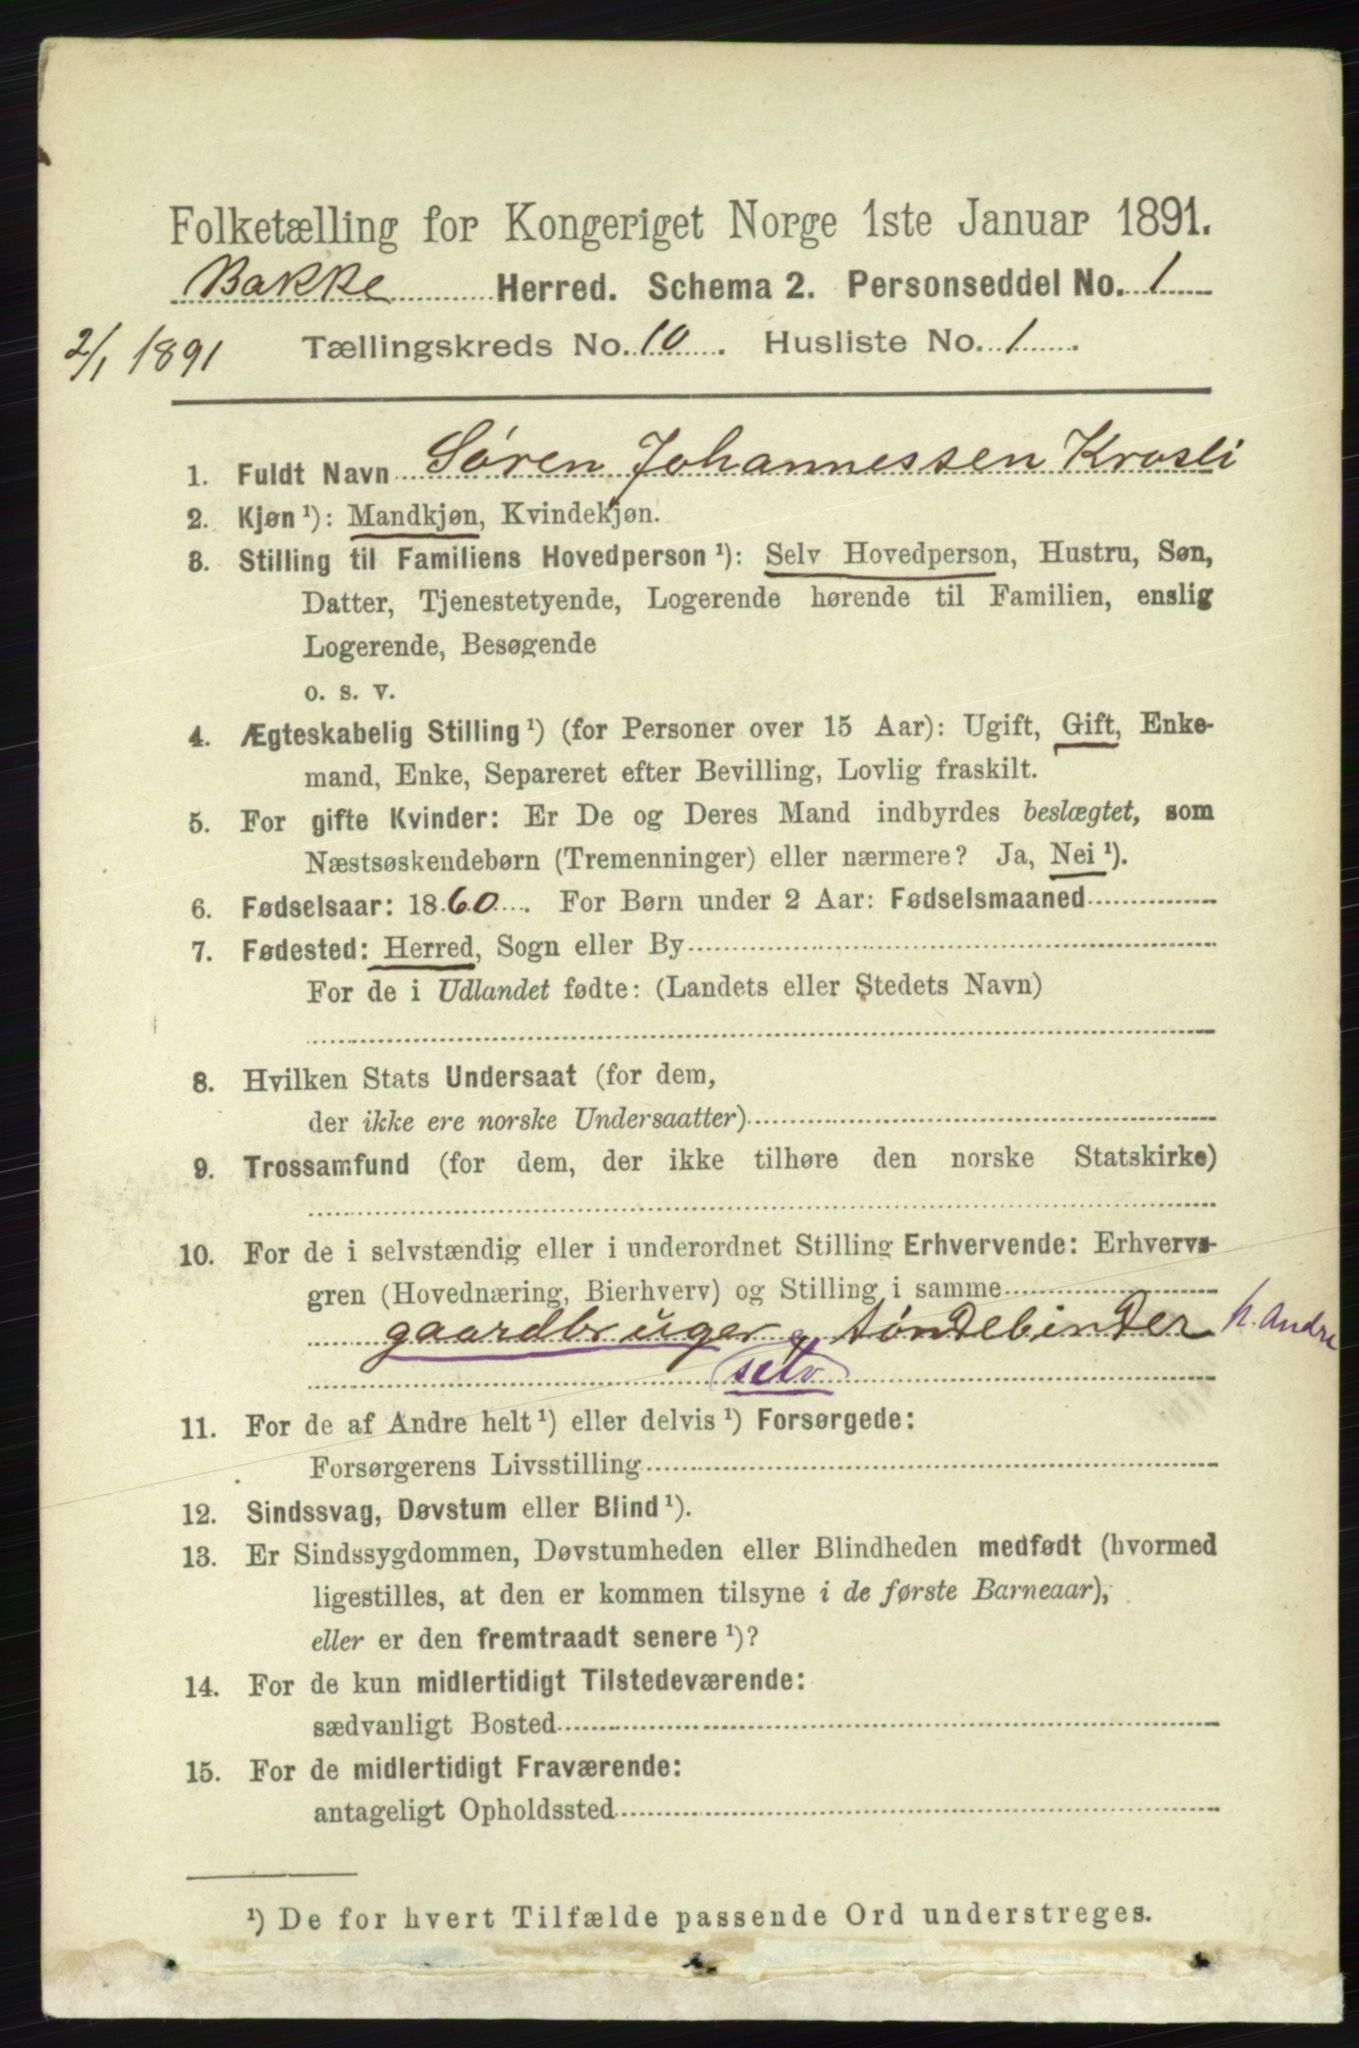 Folketælling for Kongeriget Norge 1ste Januar 1891.
Bakke Herred. Schema 2. Personseddel No. 1
2/1 1891 Tællingskreds No. 10. Husliste No. 1.
1. Fuldt Navn Søren Johannessen Krosli
2. Kjøn ¹): Mandkjøn, Kvindekjøn.
3. Stilling til Familiens Hovedperson ¹): Selv Hovedperson, Hustru, Søn,
Datter, Tjenestetyende, Logerende hørende til Familien, enslig
Logerende, Besøgende
o. s. v.
4. Ægteskabelig Stilling ¹) (for Personer over 15 Aar): Ugift, Gift, Enke-
mand, Enke, Separeret efter Bevilling, Lovlig fraskilt.
5. For gifte Kvinder: Er De og Deres Mand indbyrdes beslægtet, som
Næstsøskendebørn (Tremenninger) eller nærmere? Ja, Nei ¹).
6. Fødselsaar: 1860. For Børn under 2 Aar: Fødselsmaaned
7. Fødested: Herred, Sogn eller By
For de i Udlandet fødte: (Landets eller Stedets Navn)
8. Hvilken Stats Undersaat (for dem,
der ikke ere norske Undersaatter)
9. Trossamfund (for dem, der ikke tilhøre den norske Statskirke)
10. For de i selvstændig eller i underordnet Stilling Erhvervende: Erhvervs-
gren (Hovednæring, Bierhverv) og Stilling i samme
gaardbruger & tøndebinder h. Andre
selv
11. For de af Andre helt ¹) eller delvis ¹) Forsørgede:
Forsørgerens Livsstilling
12. Sindssvag, Døvstum eller Blind ¹).
13. Er Sindssygdommen, Døvstumheden eller Blindheden medfødt (hvormed
ligestilles, at den er kommen tilsyne i de første Barneaar),
eller er den fremtraadt senere ¹)?
14. For de kun midlertidigt Tilstedeværende:
sædvanligt Bosted
15. For de midlertidigt Fraværende:
antageligt Opholdssted
¹) De for hvert Tilfælde passende Ord understreges.